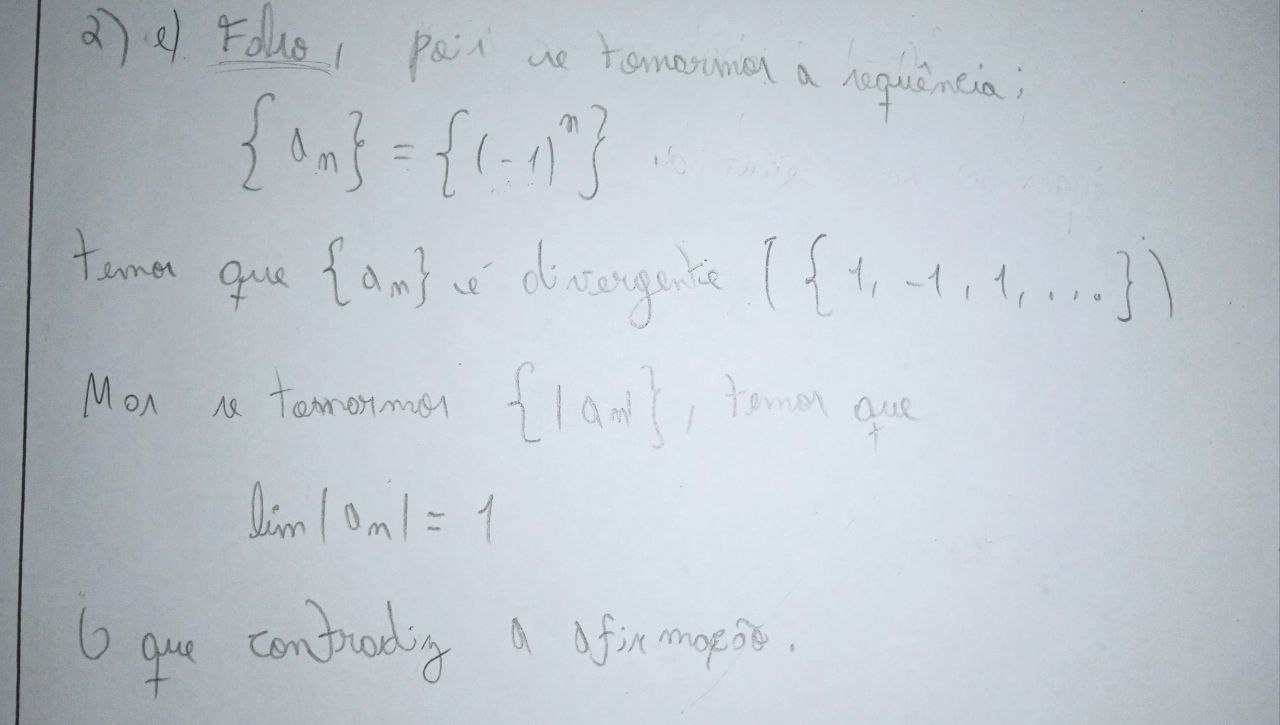 2) e) Falso, pois se tomarmos a sequência;
{an} = {(-1)^n}
temos que {an} é divergente ({1, -1, 1, ...})
Mas se tomarmos {|an|}, temos que
lim |an| = 1
O que contradiz a afirmação.